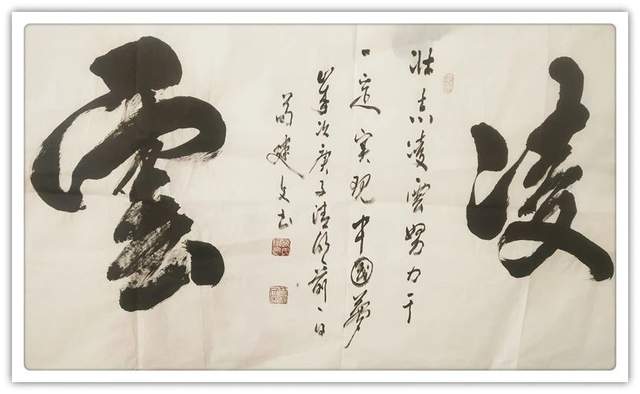 凌
壮志凌雲努力干
一定实现中國梦
岁次庚子清明前一日
文书
雲